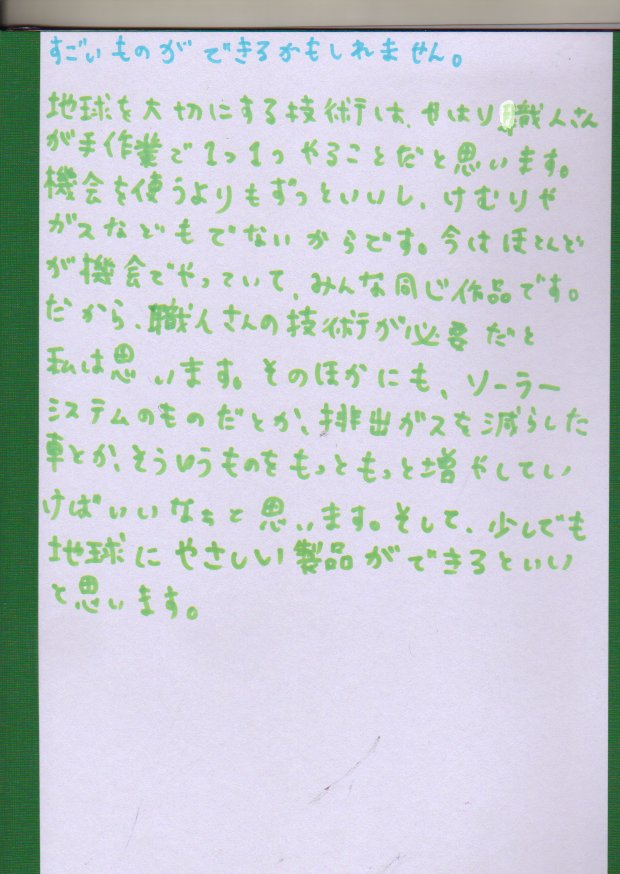 すごいものができるかもしれません。
地球を大切にする技術は、やはり職人さん
が手作業で1つ1つやることだと思います。
機会を使うよりもずっといいし、けむりや
ガスなどもでないからです。今はほとんど
が機会でやっていて、みんな同じ作品です。
だから、職人さんの技術が必要だと
私は思います。そのほかにも、ソーラー
システムのものだとか、排出ガスを減らした
車とか、そういうものをもっともっと増やしてい
けばいいなぁと思います。そして、少しでも
地球にやさしい製品ができるといい
と思います。